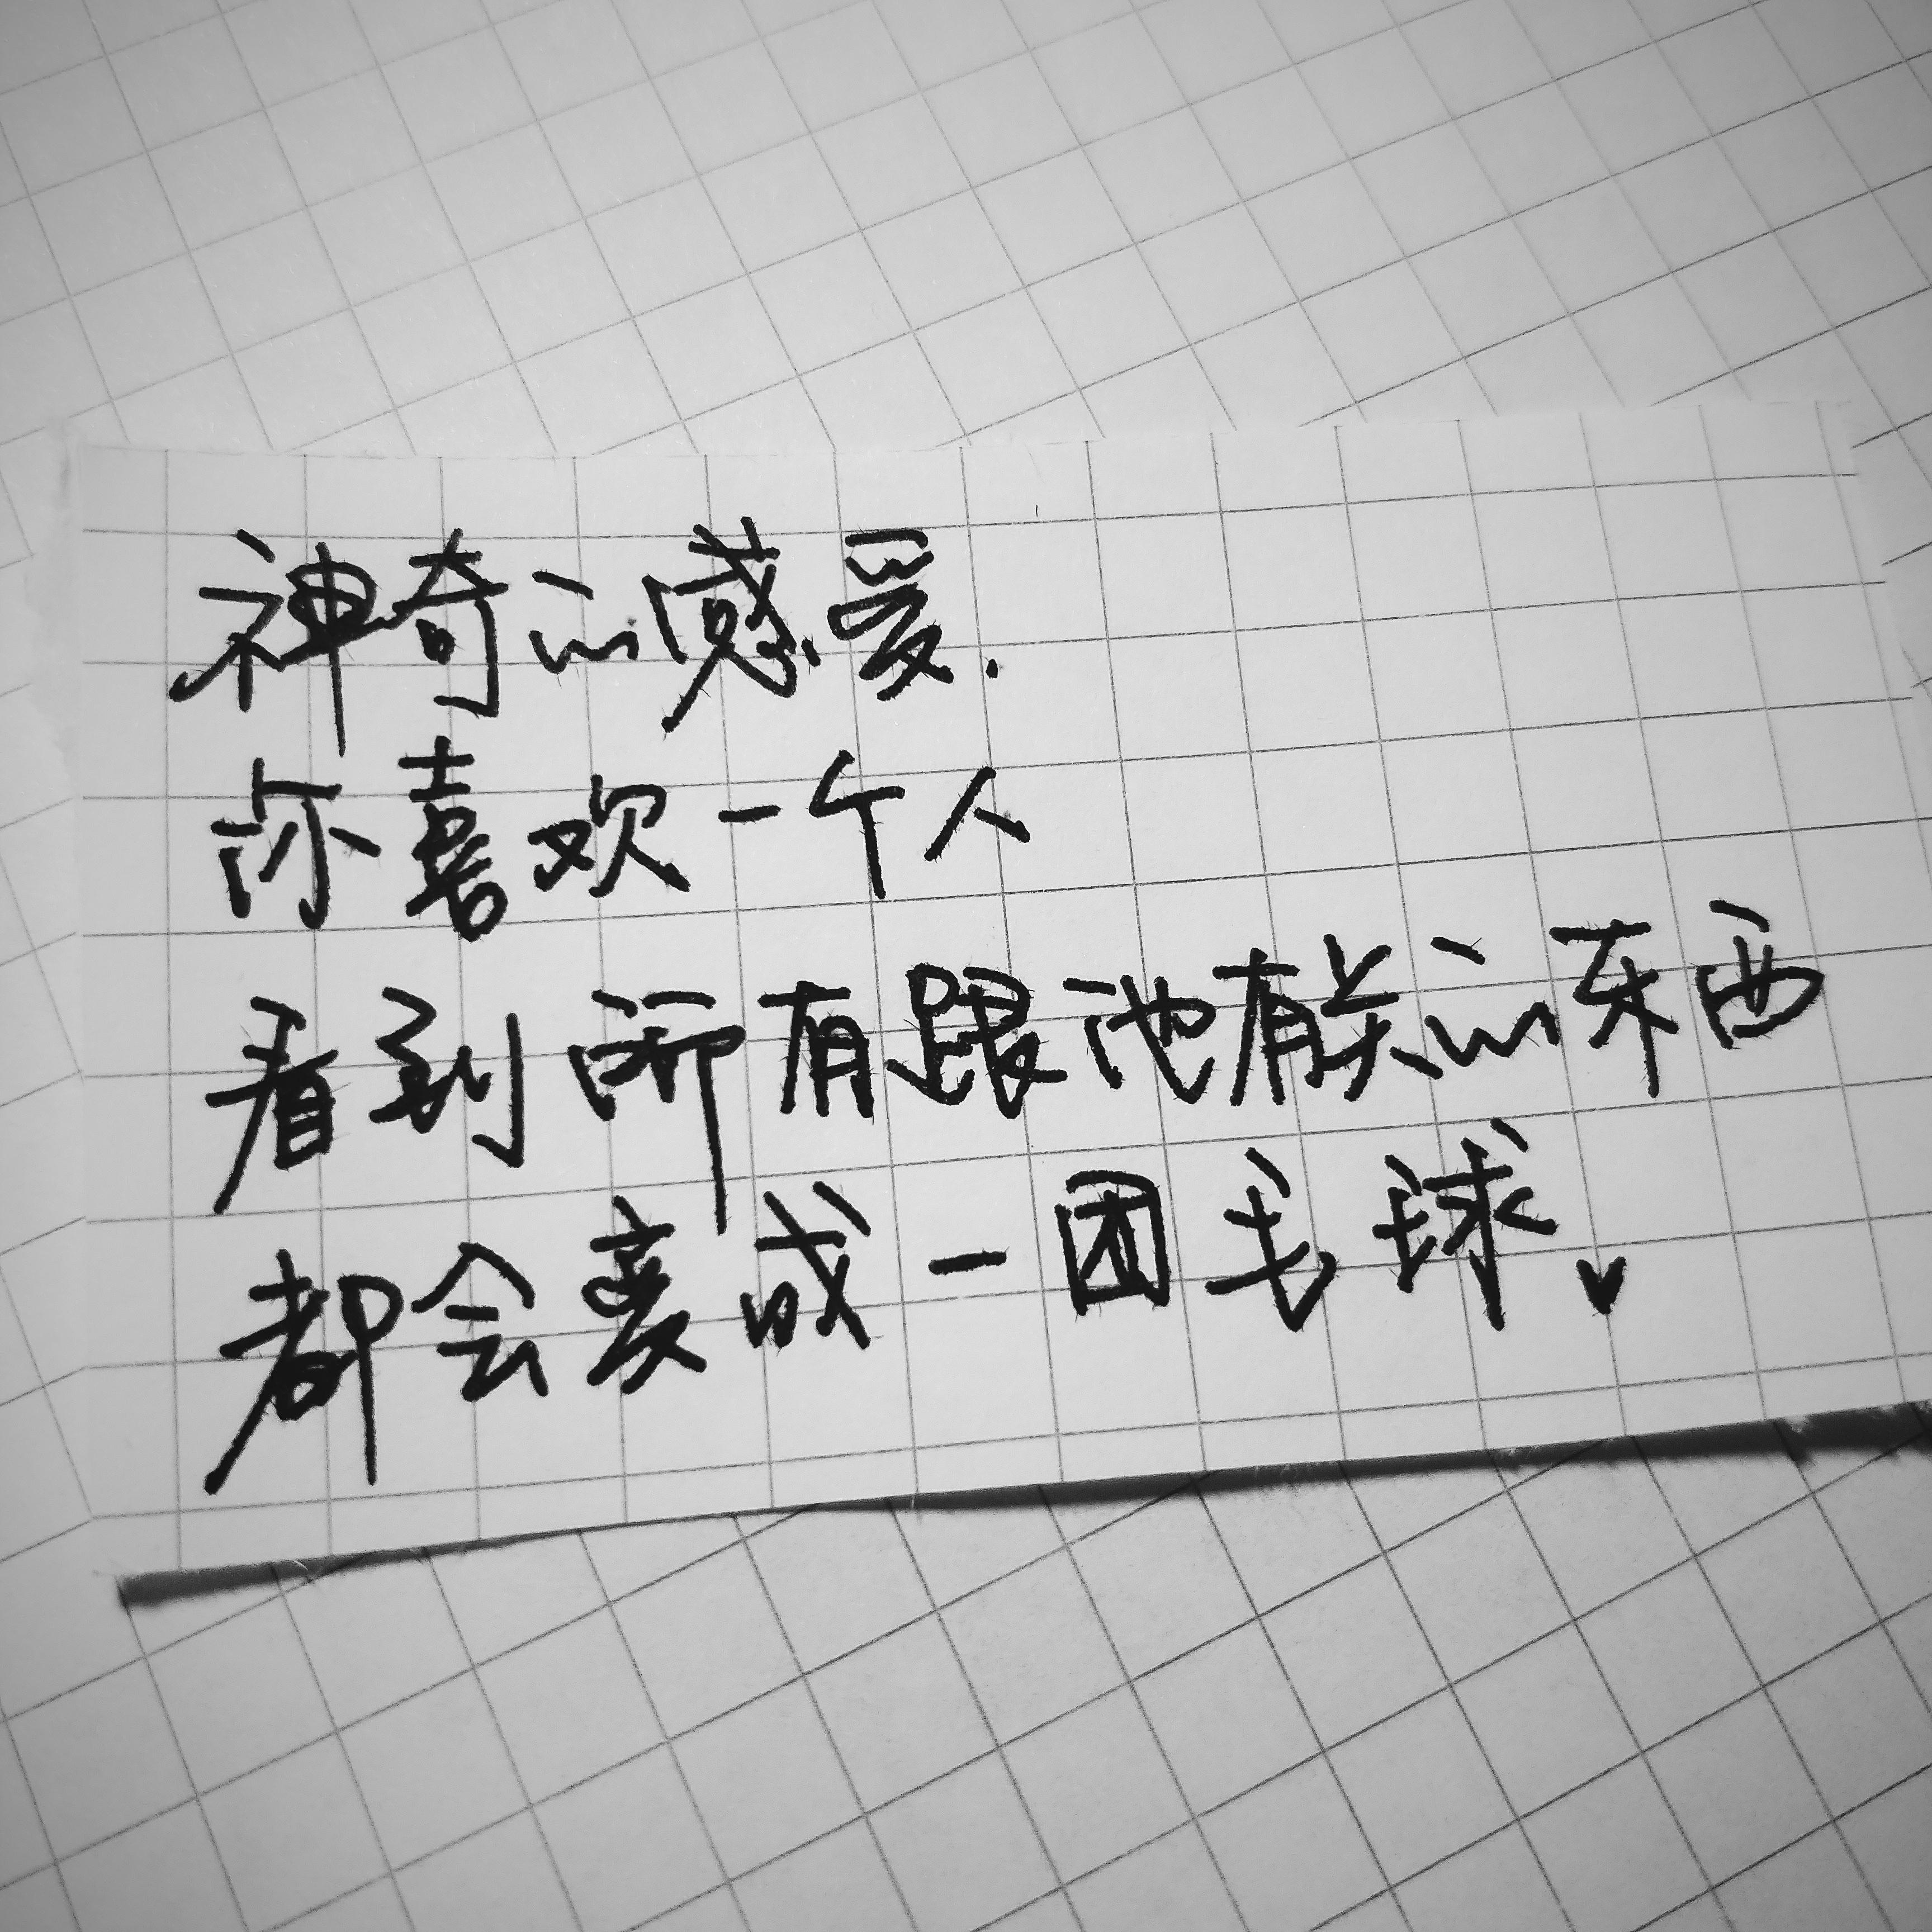 神奇的感受.
你喜欢一个人
看到所有跟他有关的东西
都会变成一团毛球